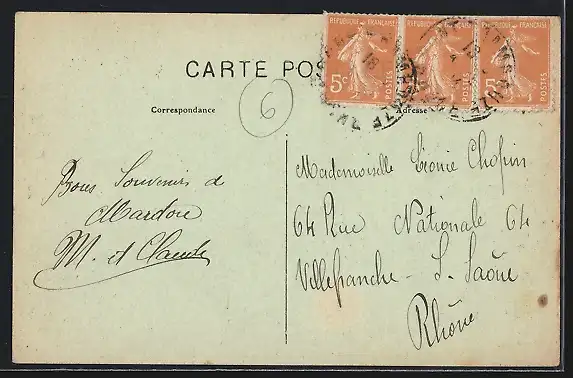 CARTE PO
Correspondance
Adresse
6
REPUBLIQUE FRANÇAISE
5c
POSTES
REPUBLIQUE FRANÇAISE
POSTES
REPUBLIQUE FRANÇAISE
5
POSTES
Bons Souvenirs de
Mardore
M. et Claude
Mademoiselle Léonie Chopin
64 Rue Nationale 64
Villefranche - S. Saône
Rhône